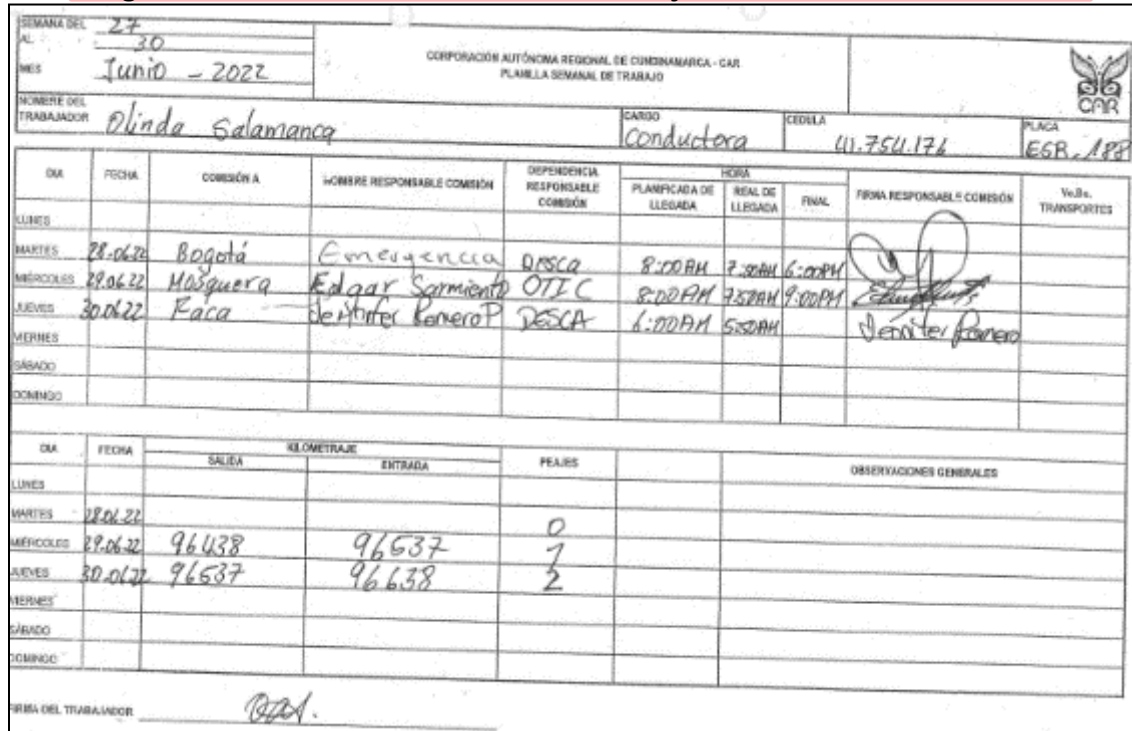 SEMANA DEL 27
AL 30
MES Junio - 2022
CORPORACIÓN AUTÓNOMA REGIONAL DE CUNDINAMARCA - CAR
PLANILLA SEMANAL DE TRABAJO
CAR
NOMBRE DEL TRABAJADOR Olinda Salamanca CARGO Conductora CEDULA 41.754.176 PLACA
DIA FECHA COMISIÓN A NOMBRE RESPONSABLE COMISIÓN DEPENDENCIA RESPONSABLE COMISIÓN HORA PLANIFICADA DE LLEGADA REAL DE LLEGADA FINAL FIRMA RESPONSABLE COMISIÓN Vo.Bo. TRANSPORTES
LUNES
MARTES 28.06.22 Bogotá Emergencia DESCA 8:00AM 7:50AM 6:00PM
MIÉRCOLES 29.06.22 Mosquera Edgar Sarmiento OTIC 8:00AM 7:50AM 9:00PM
JUEVES 30.06.22 Faca Jennifer Romero P DESCA 6:00AM 5:50AM Jennifer Romero
VIERNES
SÁBADO
DOMINGO
DIA FECHA KILOMETRAJE SALIDA ENTRADA PEAJES OBSERVACIONES GENERALES
LUNES
MARTES 28.06.22 0
MIÉRCOLES 29.06.22 96438 96537 1
JUEVES 30.06.22 96537 96638 2
VIERNES
SÁBADO
DOMINGO
FIRMA DEL TRABAJADOR